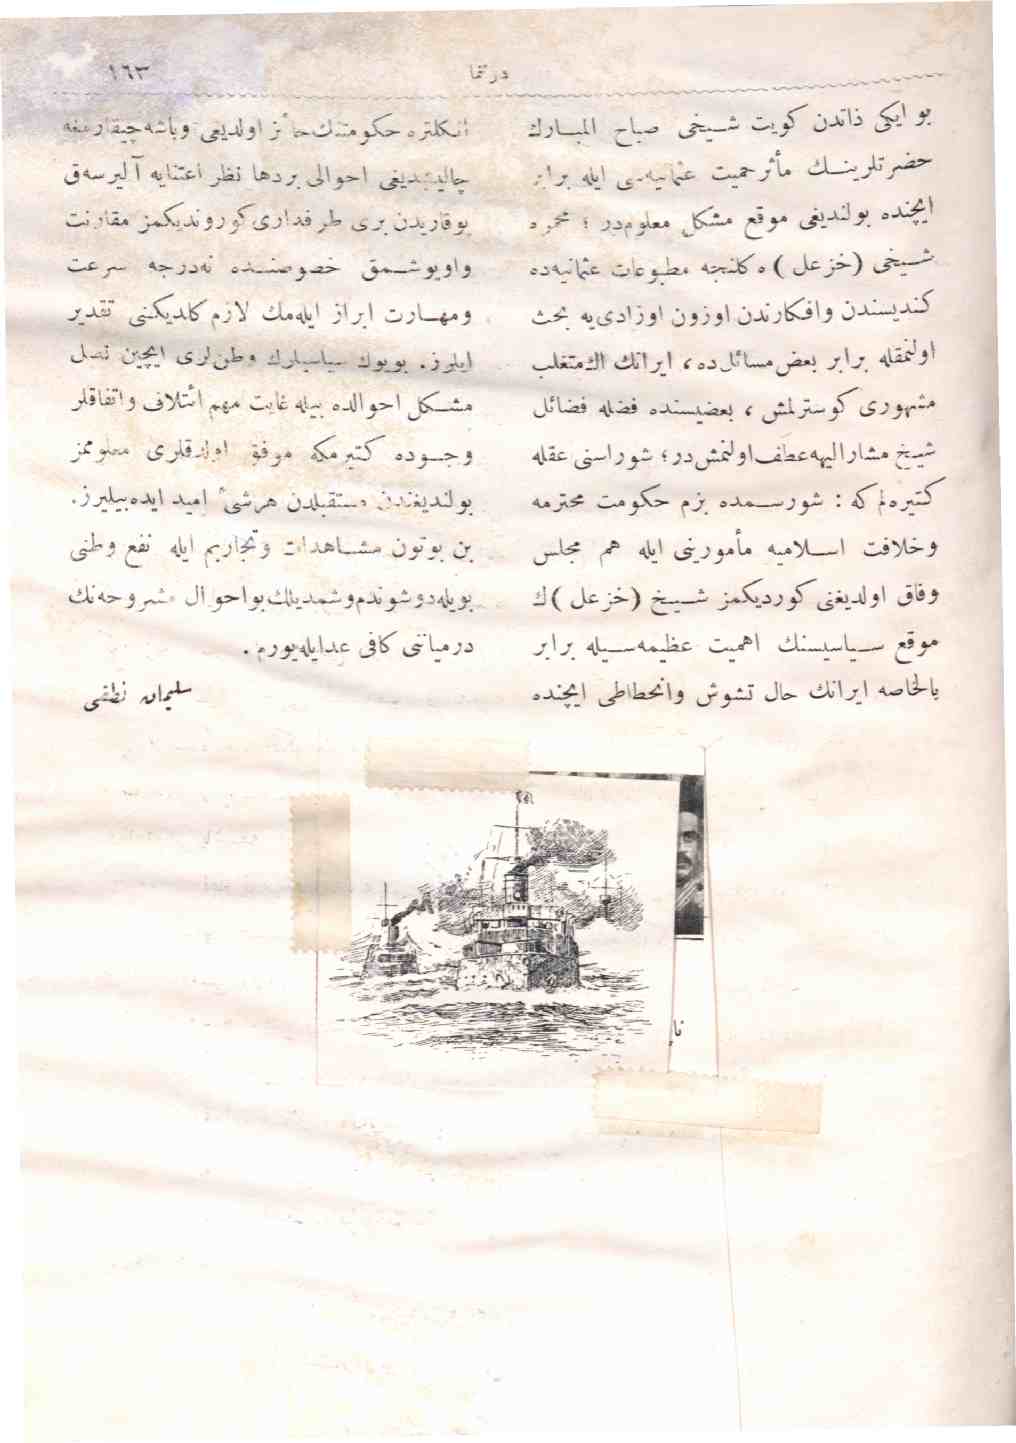 درتما
١٦٣
بو ایکی ذاتدن کویت شـیخی صباح المبـارك
حضرتلرینـك مأثر حمیت عثمانیه‌سی ایله برابر
ایچنده بولندیغی موقع مشکل معلوم‌در ؛ محمره
شـیخی (خزعل) ه کلنجه مطبوعات عثمانیه‌ده
کندیسندن وافکارندن اوزون اوزادی‌یه بحث
اولنمقله برابر بعض مسائل‌ده ، ایرانك اك متغلب
مشهوری کوسترلمش ، بعضیسنده فضله فضائل
شیخ مشارالیهه عطف اولنمش‌در ؛ شوراسنی عقله
کتیره‌لم که : شورسـمده بزم حکومت محترمه
وخلافت اسـلامیه مأمورینی ایله هم مجلس
وفاق اولدیغنی کوردیکمز شـیخ (خزعل) ك
موقع سـیاسیسنك اهمیت عظیمه‌سـیله برابر
بالخاصه ایرانك حال تشوش وانحطاطی ایچنده
انکلتره حکومتنك حائز اولدیغی وباشه چیقارمغه
چالیشدیغی احوالی بردها نظر اعتنایه آلیرسه‌ق
یوقاریدن بری طرفداری کوروندیکمز مقارنت
واویوشـمق خصوصنـده نه‌درجه سرعت
ومهـارت ابراز ایله‌مك لازم کلدیکنی تقدیر
ایلرز . بویوك سیاسیلرك وطن‌لری ایچین نصل
مشـکل احوالده بیله غایت مهم ائتلاف واتفاقلر
وجـوده کتیرمکه موفق اولدقلری معلوممز
بولندیغندن مستقبلدن هرشیء امید ایده‌بیلیرز .
بن بوتون مشـاهدات وتجاربم ایله نفع وطنی
بویله دوشوندم وشمدیلك بواحوال مشروحه‌نك
درمیاننی کافی عدایله‌یورم .
سلیمان نطقی